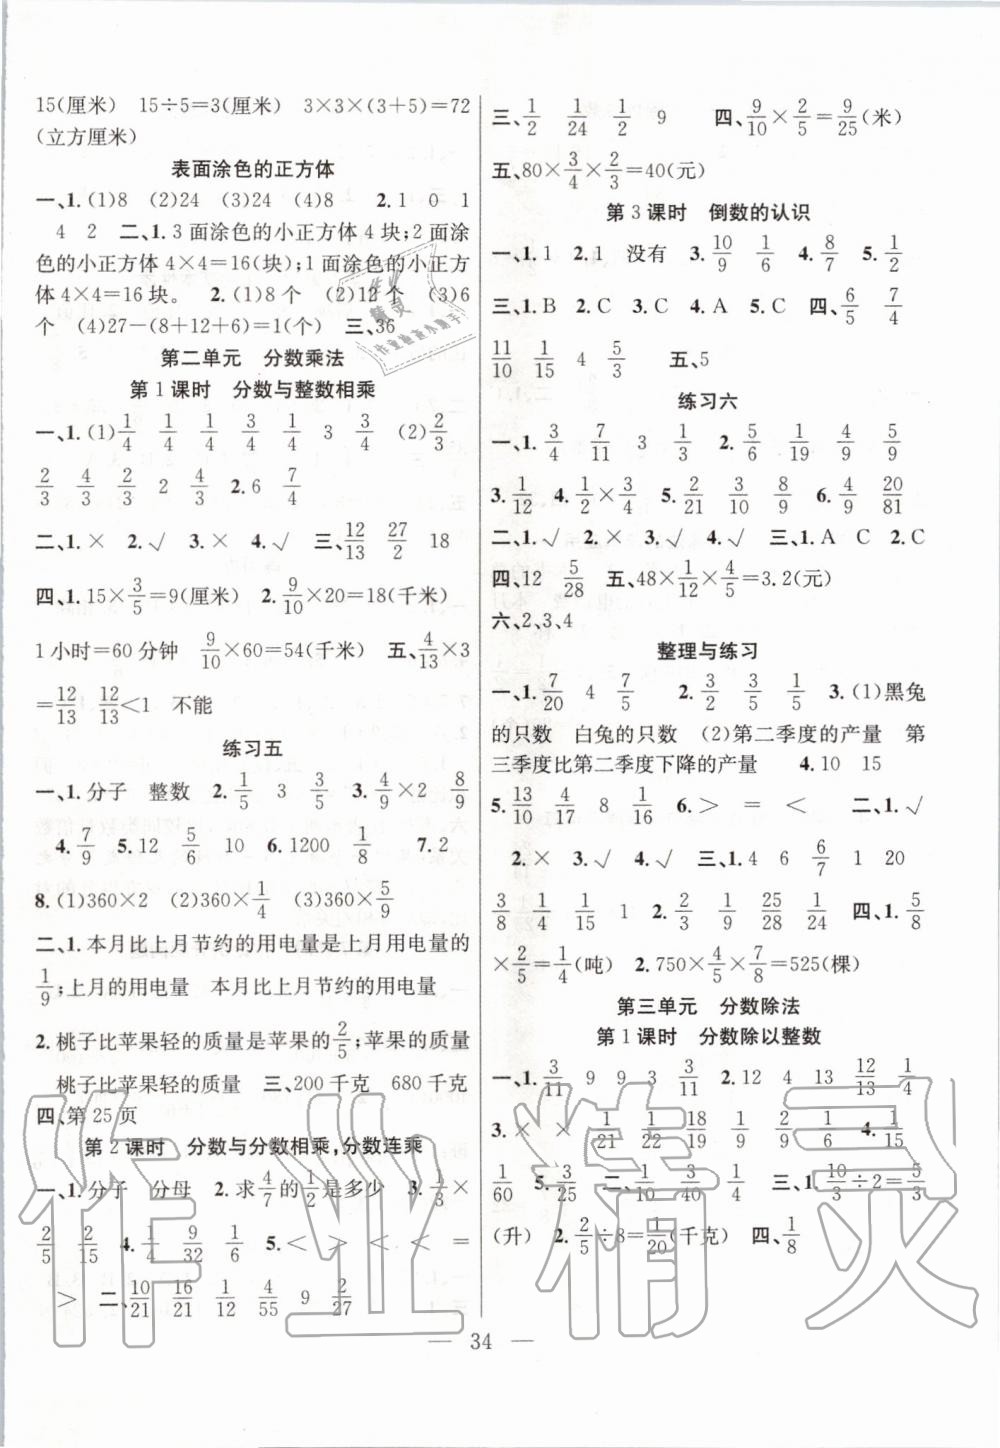 15(厘米) 15÷5=3(厘米) 3×3×(3+5)=72
(立方厘米)
表面涂色的正方体
一、1.(1)8 (2)24 (3)24 (4)8 2.1 0 1
4 2 二、1.3 面涂色的小正方体 4 块;2 面涂
色的小正方体 4×4=16(块);1 面涂色的小正方
体 4×4=16 块。 2.(1)8 个 (2)12 个 (3)6
个 (4)27-(8+12+6)=1(个) 三、36
第二单元 分数乘法
第 1 课时 分数与整数相乘
一、1.(1)1/4 1/4 1/4 3/4 1/4 3 3/4 (2)2/3
2/3 4/3 2/3 2 4/3 2.6 7/4
二、1.× 2.√ 3.× 4.√ 三、12/13 27/2 18
四、1.15×3/5=9(厘米) 2.9/10×20=18(千米)
1 小时=60 分钟 9/10×60=54(千米) 五、4/13×3
=12/13 12/13<1 不能
练习五
一、1.分子 整数 2.1/5 3 3/5 3.4/9×2 8/9
4.7/9 5.12 5/6 10 6.1200 1/8 7.2
8.(1)360×2 (2)360×1/4 (3)360×5/9
二、1.本月比上月节约的用电量是上月用电量的
1/9;上月的用电量 本月比上月节约的用电量
2.桃子比苹果轻的质量是苹果的2/5;苹果的质量
桃子比苹果轻的质量 三、200 千克 680 千克
四、第 25 页
第 2 课时 分数与分数相乘,分数连乘
一、1.分子 分母 2.求4/7的1/2是多少 3.1/3×
2/5 2/15 4.1/4 9/32 1/6 5.< > < < =
> 二、10/21 16/21 1/12 4/55 9 2/27
三、1/2 1/24 1/2 9 四、9/10×2/5=9/25(米)
五、80×3/4×2/3=40(元)
第 3 课时 倒数的认识
一、1.1 2.1 没有 3.10/9 1/6 4.8/7 5.1/2
三、1.B 2.C 3.C 4.A 5.C 四、6/5 7/4
11/10 1/15 4 5/3 五、5
练习六
一、1.3/4 7/11 3 1/3 2.5/6 1/19 4/9 5/9
3.1/12 4.1/2×3/4 5.2/21 3/10 8/9 6.4/9 20/81
二、1.√ 2.× 3.√ 4.√ 三、1.A C 2.C
四、12 5/28 五、48×1/12×4/5=3.2(元)
六、2、3、4
整理与练习
一、1.7/20 4 7/5 2.3/2 3/5 1/5 3.(1)黑兔
的只数 白兔的只数 (2)第二季度的产量 第
三季度比第二季度下降的产量 4.10 15
5.13/10 4/17 8 1/16 6.> = < 二、1.√
2.× 3.√ 4.√ 三、1.4 6 6/7 1 20
3/8 1/4 1/15 1 2.2/3 1/9 25/28 1/24 四、1.5/8
×2/5=1/4(吨) 2.750×4/5×7/8=525(棵)
第三单元 分数除法
第 1 课时 分数除以整数
一、1.3/11 9 9 3 3/11 2.12 4 13 12/13 1/4
3.× × 1/21 1/22 18/19 1/9 2/9 1/6 4.1/15
1/60 5.3/25 二、1/10 3/40 1/4 三、1.10/3÷2=5/3
(升) 2.2/5÷8=1/20(千克) 四、1/8
34
作业精灵